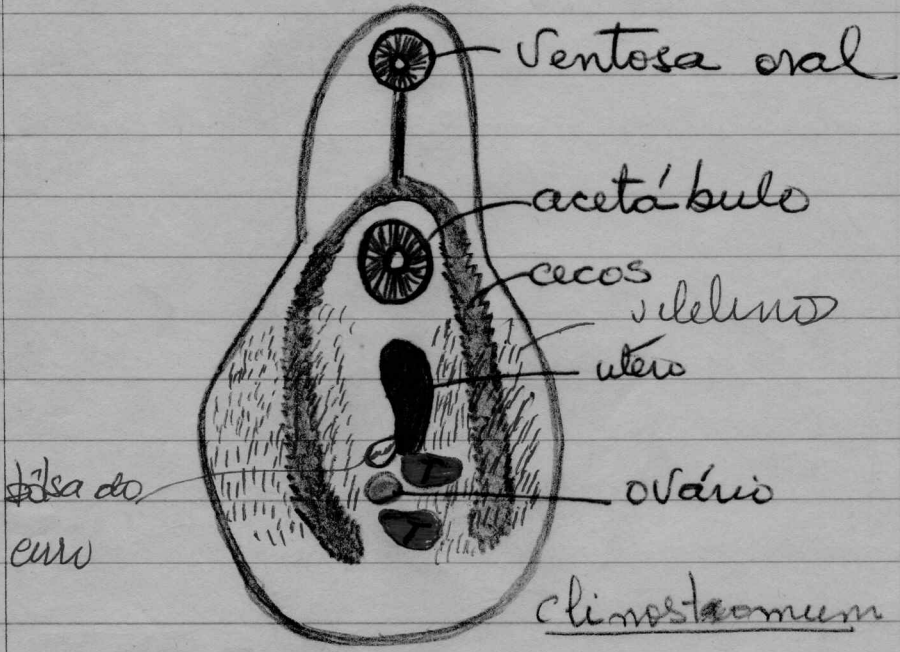 ventosa oral
acetábulo
cecos
vitelinos
útero
bolsa do
cirro
ovário
T
T
clinostomum